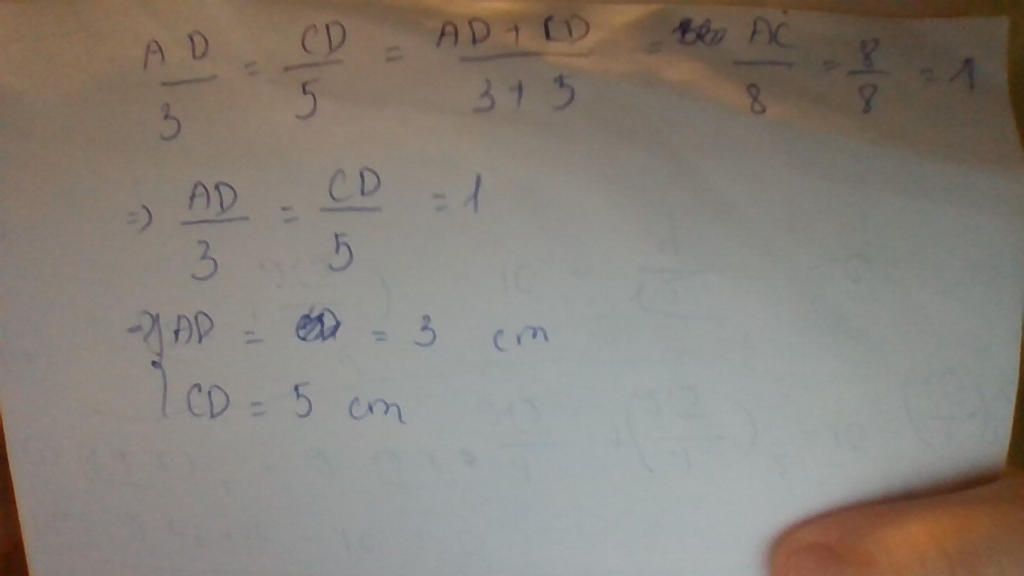 AD/3 = CD/5 = AD+CD/3+5 = AC/8 = 8/8 = 1
=> AD/3 = CD/5 = 1
=> { AD = = 3 cm
CD = 5 cm